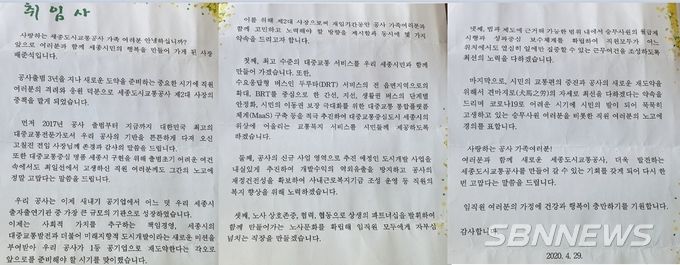 취임사
사랑하는 세종도시교통공사 가족 여러분 안녕하십니까?
앞으로 여러분과 함께 세종시민의 행복을 만들어 가게 된 사장
배준석입니다.
공사출범 3년을 지나 새로운 도약을 준비하는 중요한 시기에 직원
여러분의 격려와 응원 덕분으로 세종도시교통공사 제2대 사장의
중책을 맡게 되었습니다.
먼저 2017년 공사 출범부터 지금까지 대한민국 최고의
대중교통전문가로서 우리 공사의 기반을 튼튼하게 다져 오신
고칠진 전임 사장님께 존경과 감사의 말씀을 드립니다.
또한 대중교통중심 명품 세종시 구현을 위해 출범초기 어려운 여건
속에서도 최일선에서 고생하신 직원 여러분께도 그간의 노고에
정말 고맙다는 말씀을 드립니다.
우리 공사는 이제 새내기 공기업에서 어느 덧 우리 세종시
출자출연기관 중 가장 큰 규모의 기관으로 성장하였습니다.
이제는 사회적 가치를 추구하는 책임경영, 세종시의
대중교통발전과 더불어 미래지향적 도시개발이라는 새로운 미션을
부여받아 우리 공사가 1등 공기업으로 재도약한다는 각오로
앞으로를 준비해야 할 시기를 맞이했습니다.
이를 위해 제2대 사장으로써 재임기간동안 공사 가족여러분과
함께 고민하고 노력해야 할 방향을 제시함과 동시에 몇 가지
약속을 드리고자 합니다.
첫째, 최고 수준의 대중교통 서비스를 우리 세종시민과 함께
만들어 가겠습니다. 또한,
수요응답형 버스인 두루타(DRT) 서비스의 전 읍면지역으로의
확대, BRT를 중심으로 한 간선, 지선, 생활권 버스의 단계별
안정화, 시민의 이동권 보장 극대화를 위한 대중교통 통합플랫폼
체계(MaaS) 구축 등을 적극 추진하여 대중교통중심도시 세종시의
위상에 어울리는 교통복지 서비스를 시민들께 제공하도록
하겠습니다.
둘째, 공사의 신규 사업 영역으로 추진 예정인 도시개발 사업을
내실있게 추진하여 개발수익의 역외유출을 방지하고 공사의
재정건전성을 확보하여 사내근로복지기금 조성 운영 등 직원의
복지 향상을 위해 노력하겠습니다.
셋째, 노사 상호존중, 협력, 협동으로 상생의 파트너십을 발휘하여
함께 만들어가는 노사문화를 확립해 임직원 모두에게 자부심
넘치는 직장을 만들겠습니다.
넷째, 법과 제도에 근거해 가능한 범위 내에서 승무사원의 월급제
시행과 성과중심 보수체계를 확립하여 직원모두가 어느
위치에서도 열심히 일에만 집중할 수 있는 근무여건을 조성하도록
최선의 노력을 다하겠습니다.
마지막으로, 시민의 교통편의 증진과 공사의 새로운 재도약을
위해서 견마지로(犬馬之勞)의 자세로 최선을 다하겠다는 약속을
드리며 코로나19로 어려운 시기에 시민의 발이 되어 묵묵히
고생하고 있는 승무사원 여러분을 비롯한 직원 여러분의 노고에
경의를 표합니다.
사랑하는 공사 가족여러분!
여러분과 함께 새로운 세종도시교통공사, 더욱 발전하는
세종도시교통공사를 만들어 갈 수 있는 기회를 갖게 되어 다시 한
번 고맙다는 말씀을 드립니다.
임직원 여러분의 가정에 건강과 행복이 충만하기를 기원합니다.
SBNNEWS
2020. 4. 29.